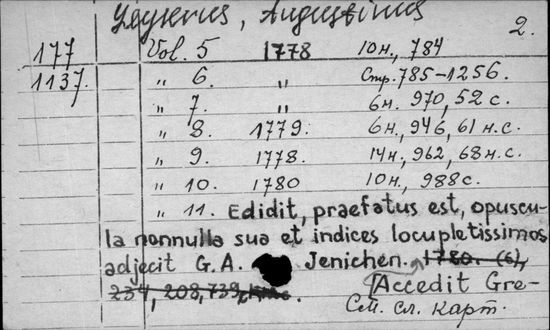 Leyserus, Augustinus
2.
177 Vol. 5 1778 10н., 784
1137. „ 6. „ Стр. 785-1256.
„ 7. „ 6н. 970, 52 с.
„ 8. 1779. 6н., 946, 61 н.с.
„ 9. 1778. 14н., 962, 68 н.с.
„ 10. 1780 10н., 988 с.
„ 11. Edidit, praefatus est, opuscu-
la nonnulla sua et indices locupletissimos
adjecit G. A. Jenichen. 1780. (6),
234, 208, 739, . Accedit Gre-
См. сл. карт.